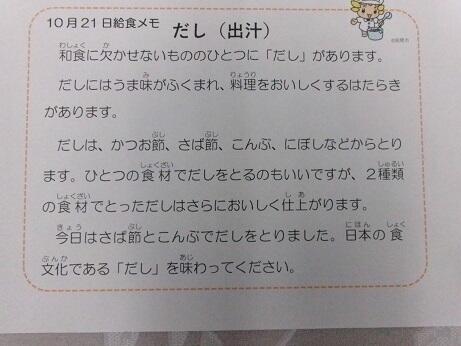 10月21日給食メモ だし（出汁）
和食に欠かせないもののひとつに「だし」があります。
だしにはうま味がふくまれ、料理をおいしくするはたらき
があります。
だしは、かつお節、さば節、こんぶ、にぼしなどからとり
ます。ひとつの食材でだしをとるのもいいですが、２種類
の食材でとっただしはさらにおいしく仕上がります。
今日はさば節とこんぶでだしをとりました。日本の食
文化である「だし」を味わってください。